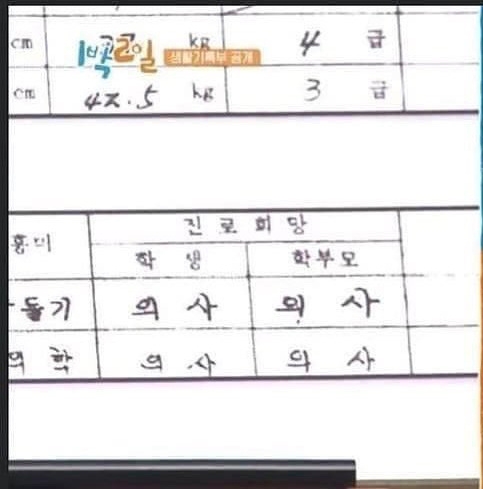 cm kg 4 급
1박2일 생활기록부 공개
cm 47.5 kg 3 급
흥미 진로희망
학 생 학부모
들기 의 사 의 사
의 학 의 사 의 사